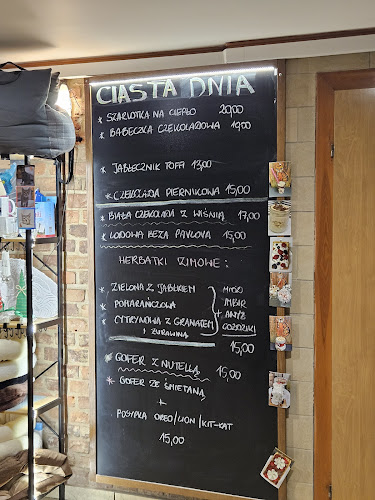 CIASTA DNIA
* SZARLOTKA NA CIEPŁO 20,00
* BABECZKA CZEKOLADOWA 19,00
JABŁECZNIK TOFFI 13,00
* CZEKOLADA PIERNIKOWA 15,00
* BIAŁA CZEKOLADA Z WIŚNIĄ 17,00
* LODOWA BEZA PAVLOVA 15,00
HERBATKI ZIMOWE:
* ZIELONA Z JABŁKIEM
* POMARAŃCZOWA
* CYTRYNOWA Z GRANATEM
I ŻURAWINĄ
MIÓD
IMBIR
+ ANYŻ
GOŹDZIKI
15,00
* GOFER Z NUTELLĄ 15,00
* GOFER ZE ŚMIETANĄ
+
POSYPKA OREO/LION/KIT-KAT
15,00